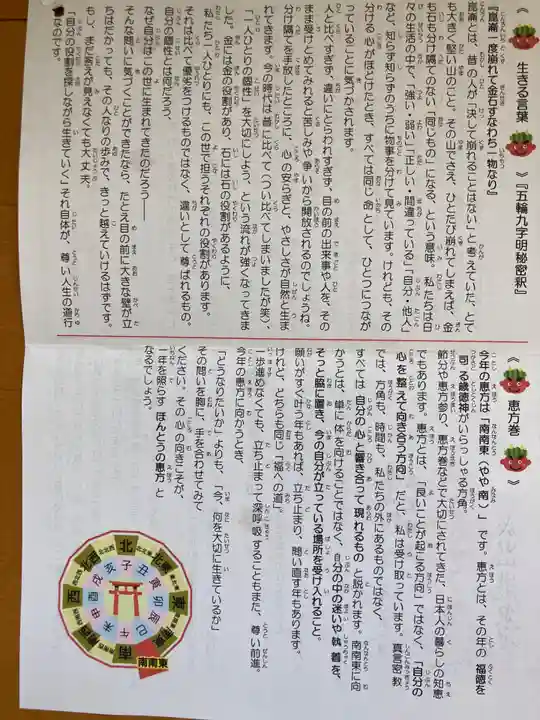 生きる言葉 『五輪九字明秘密釈』
『崑崙一度崩れて金石すなわち一物なり』
崑崙とは、昔の人が「決して崩れることはない」と考えていた、とて
も大きく堅い山のこと。その山でさえ、ひとたび崩れてしまえば、金
も石も分け隔てのない、同じもの一になる、という意味。私たちは日
々の生活の中で、「強い・弱い」「正しい・間違っている」「自分・他人」
など、知らず知らずのうちに物事を分けて見ています。けれども、その
分ける心がほどけたとき、すべては同じ命として、ひとつにつなが
っていることに気づかされます。
人と比べすぎず、違いにとらわれすぎず、目の前の出来事や人を、その
まま受けとめてみれると苦しみや争いから開放されるのでしょうね。
分け隔てを手放したところに、心の安らぎと、やさしさが自然と生ま
れてきます。今の時代は昔に比べて(つい比べてしまいましたが笑)、
「一人ひとりの個性」を大切にしよう、という流れが強くなってきま
した。金には金の役割があり、石には石の役割があるように、
私たち一人ひとりにも、この世で担うそれぞれの役割があります。
それは比べて優劣をつけるものではなく、違いとして尊ばれるもの。
自分の題目とは何だろう、
なぜ自分はこの世に生まれてきたのだろう―
そんな問いに気づくことができたなら、たとえ目の前に大きな壁が立
ちはだかっても、その人なりの歩みで、きっと越えていけるはずです。
もし、まだ答えが見えなくても大丈夫。
「自分の役割を探しながら生きていく」それ自体が、尊い人生の道行
なのです。
恵方巻
今年の恵方は「南南東(やや南)」です。恵方とは、その年の福徳を
司る歳徳神がいらっしゃる方角。
節分や恵方参り、恵方巻などで大切にされてきた、日本人の暮らしの知恵
でもあります。恵方とは、「良いことが起こる方向」ではなく、「自分の
心を整えて向き合う方向」だと、私は受け取っています。真言密教
では、方角も、時間も、私たちの外にあるものではなく、
すべては自分の心と響き合って現れるものと説かれます。南南東に向
かうとは、単に体を向けることではなく、自分の中の迷いや執着を、
そっと脇に置き、今の自分が立っている場所を受け入れること。
願いがすぐ叶う年もあれば、立ち止まり、問い直す年もあります。
けれど、どちらも同じ「福への道」。
一歩進めなくても、立ち止まって深呼吸することもまた、尊い前進。
今年の恵方に向かうとき、
「どうなりたいか」よりも、「今、何を大切に生きているか」
その問いを胸に、手を合わせてみて
ください。その心の向きこそが、
一年を照らすほんとうの恵方と
なるでしょう。
北
北北東
東
南南東
南
西
北西
子
丑
寅
卯
辰
巳
午
未
申
酉
戌
亥